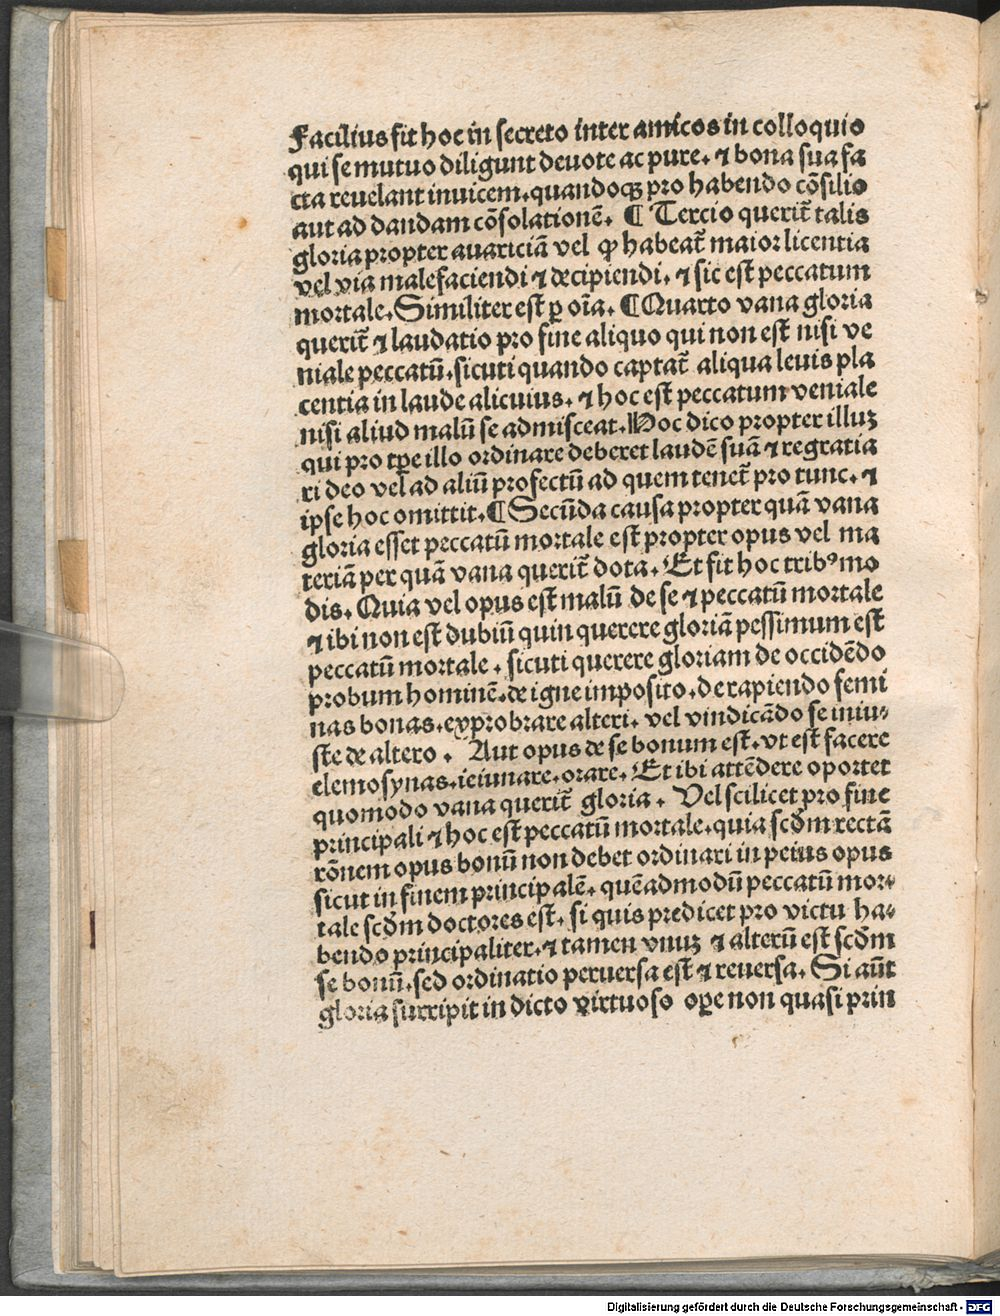 Facilius fit hoc in secreto inter amicos in colloquio
qui se mutuo diligunt deuote ac pure. ⁊ bona sua fa
cta reuelant inuicem. quandoqꝫ pro habendo cōsilio
aut ad dandam cōsolationē. ¶ Tercio querit̄ talis
gloria propter auariciā vel ꝙ habeat̄ maior licentia
vel via malefaciendi ⁊ decipiendi. ⁊ sic est peccatum
mortale. Similiter est ꝑ oīa. ¶ Quarto vana gloria
querit̄ ⁊ laudatio pro fine aliquo qui non est nisi ve
niale peccatū. sicuti quando captat̄ aliqua leuis pla
centia in laude alicuius. ⁊ hoc est peccatum veniale
nisi aliud malū se admisceat. Hoc dico propter illuꝫ
qui pro tꝑe illo ordinare deberet laudē suā ⁊ regratia
ri deo vel ad aliū profectū ad quem tenet̄ pro tunc. ⁊
ipse hoc omittit. ¶ Secūda causa propter quā vana
gloria esset peccatū mortale est propter opus vel ma
teriā per quā vana querit̄ dota. Et fit hoc tribꝰ mo
dis. Quia vel opus est malū de se ⁊ peccatū mortale
⁊ ibi non est dubiū quin querere gloriā pessimum est
peccatū mortale. sicuti querere gloriam de occidēdo
probum hominē. de igne imposito. de rapiendo femi
nas bonas. exprobrare alteri. vel vindicādo se iniu⸗
ste de altero. Aut opus de se bonum est. vt est facere
elemosynas. ieiunare. orare. Et ibi attēdere oportet
quomodo vana querit̄ gloria. Vel scilicet pro fine
principali ⁊ hoc est peccatū mortale. quia scd̄m rectā
rōnem opus bonū non debet ordinari in peius opus
sicut in finem principalē. quēadmodū peccatū mor⸗
tale scd̄m doctores est. si quis predicet pro victu ha⸗
bendo principaliter. ⁊ tamen vnuꝫ ⁊ alterū est scd̄m
se bonū. sed ordinatio peruersa est ⁊ reuersa. Si aūt
gloria surripit in dicto virtuoso oꝑe non quasi prin
Digitalisierung gefördert durch die Deutsche Forschungsgemeinschaft - DFG